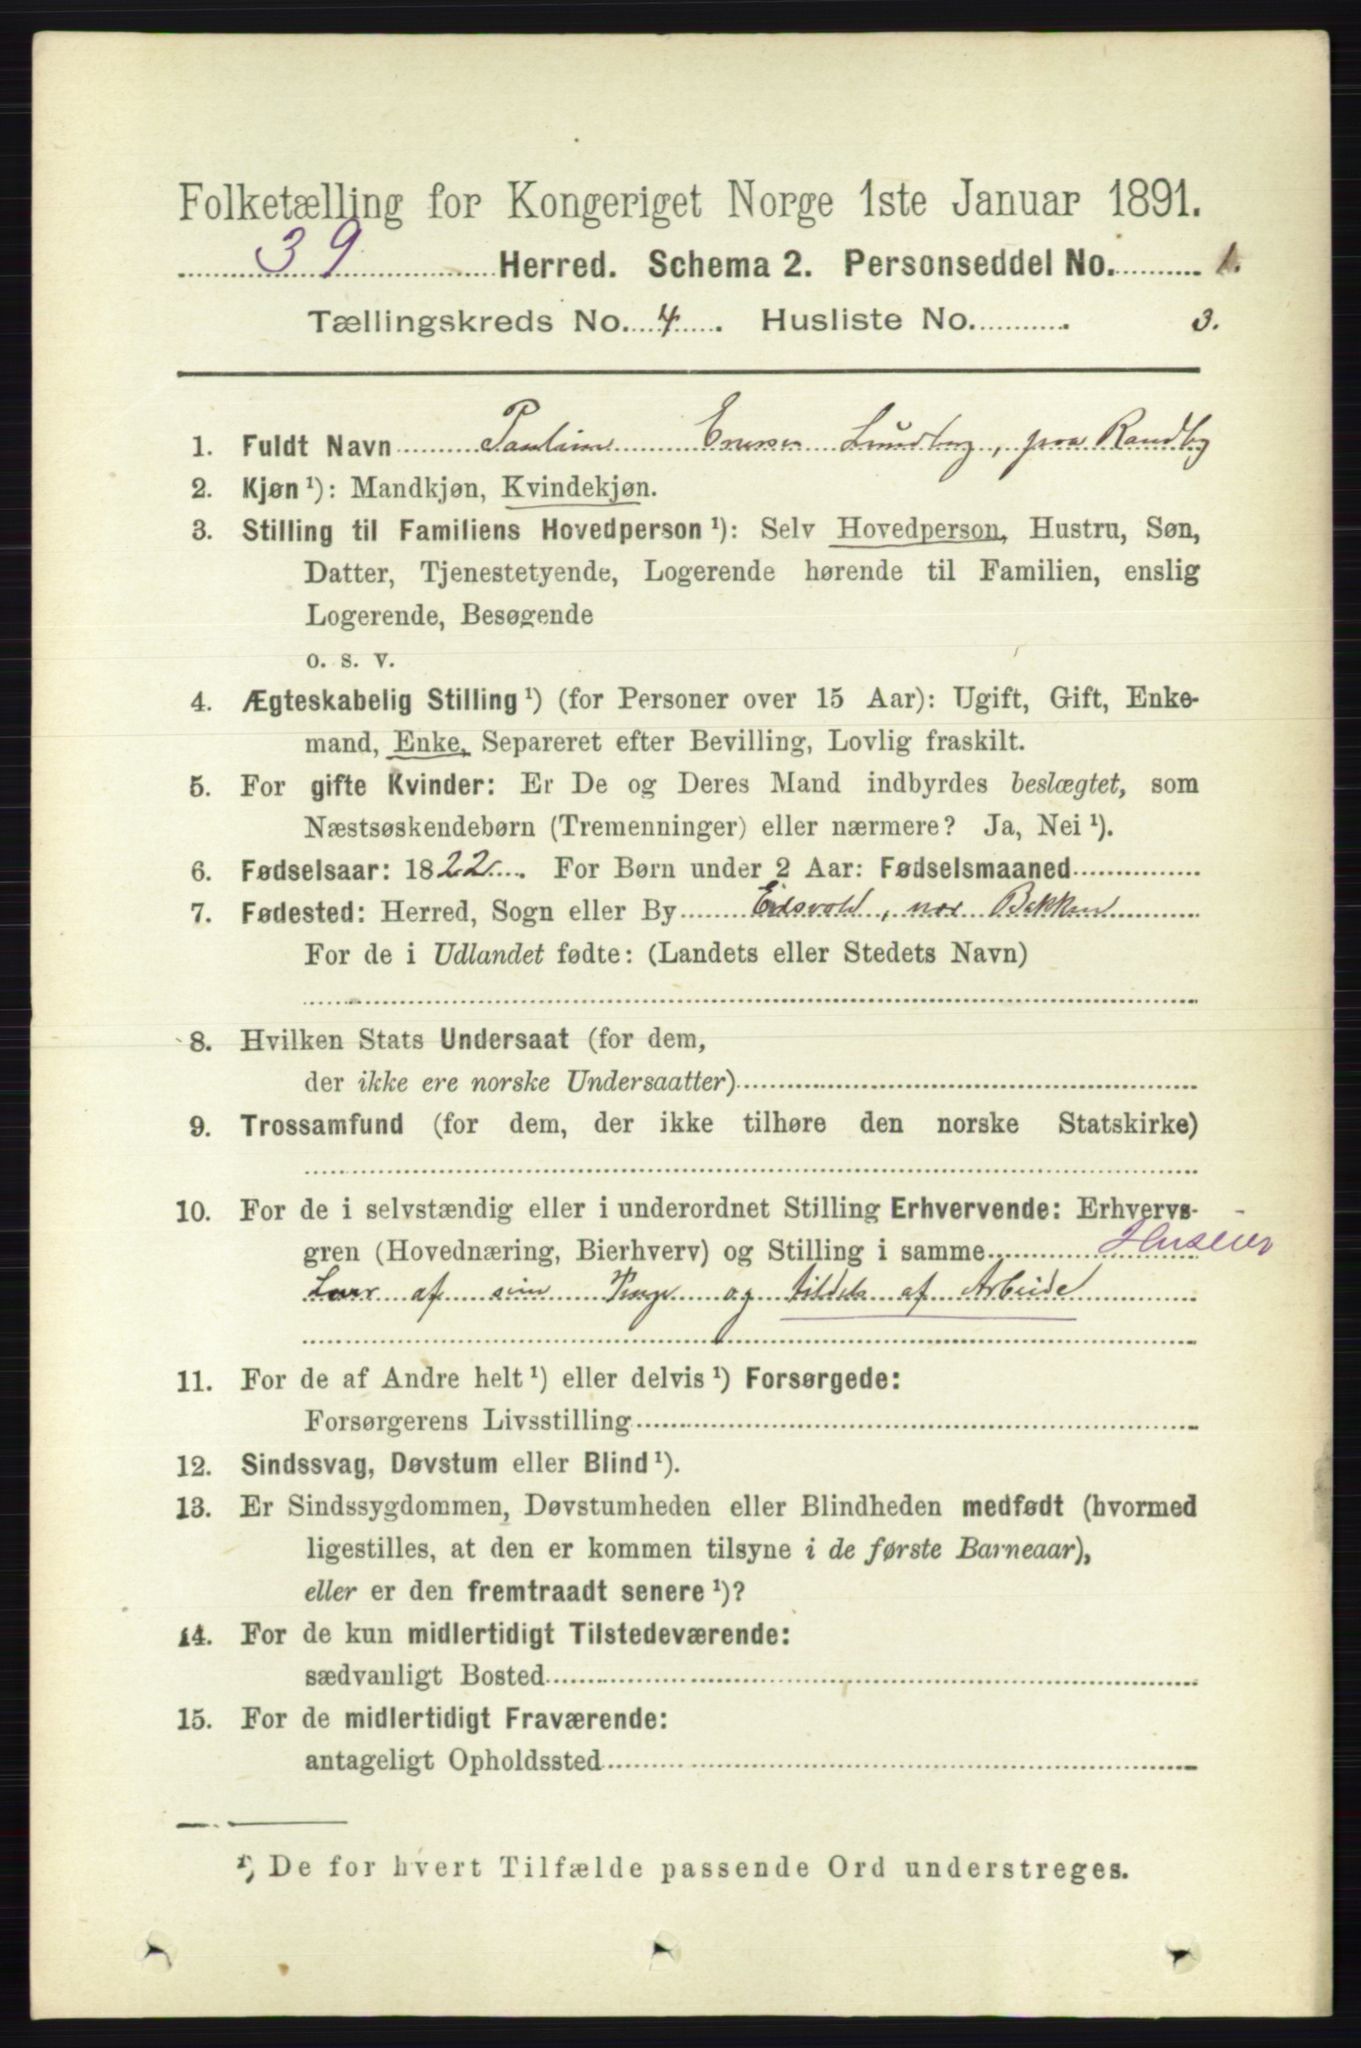 Folketælling for Kongeriget Norge 1ste Januar 1891.
39 Herred. Schema 2. Personseddel No. 1.
Tællingskreds No. 4. Husliste No. 3.
1. Fuldt Navn Pauline Lundberg, paa Randby
2. Kjøn ¹): Mandkjøn, Kvindekjøn.
3. Stilling til Familiens Hovedperson ¹): Selv Hovedperson, Hustru, Søn,
Datter, Tjenestetyende, Logerende hørende til Familien, enslig
Logerende, Besøgende
o. s. v.
4. Ægteskabelig Stilling ¹) (for Personer over 15 Aar): Ugift, Gift, Enke-
mand, Enke, Separeret efter Bevilling, Lovlig fraskilt.
5. For gifte Kvinder: Er De og Deres Mand indbyrdes beslægtet, som
Næstsøskendebørn (Tremenninger) eller nærmere? Ja, Nei ¹).
6. Fødselsaar: 1822. For Børn under 2 Aar: Fødselsmaaned
7. Fødested: Herred, Sogn eller By Eidsvold, Bekken
For de i Udlandet fødte: (Landets eller Stedets Navn)
8. Hvilken Stats Undersaat (for dem,
der ikke ere norske Undersaatter)
9. Trossamfund (for dem, der ikke tilhøre den norske Statskirke)
10. For de i selvstændig eller i underordnet Stilling Erhvervende: Erhvervs-
gren (Hovednæring, Bierhverv) og Stilling i samme Huseier
Lever af sine Penge og tildels af Arbeide
11. For de af Andre helt ¹) eller delvis ¹) Forsørgede:
Forsørgerens Livsstilling
12. Sindssvag, Døvstum eller Blind ¹).
13. Er Sindssygdommen, Døvstumheden eller Blindheden medfødt (hvormed
ligestilles, at den er kommen tilsyne i de første Barneaar),
eller er den fremtraadt senere ¹)?
14. For de kun midlertidigt Tilstedeværende:
sædvanligt Bosted
15. For de midlertidigt Fraværende:
antageligt Opholdssted
¹) De for hvert Tilfælde passende Ord understreges.